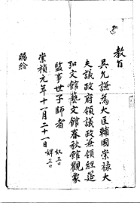 教旨
吳允謙爲大匡輔國崇祿大
夫議政府領議政兼領經筵
弘文館藝文館春秋館觀象
監事世子師者
崇禎元年十一月二十一日